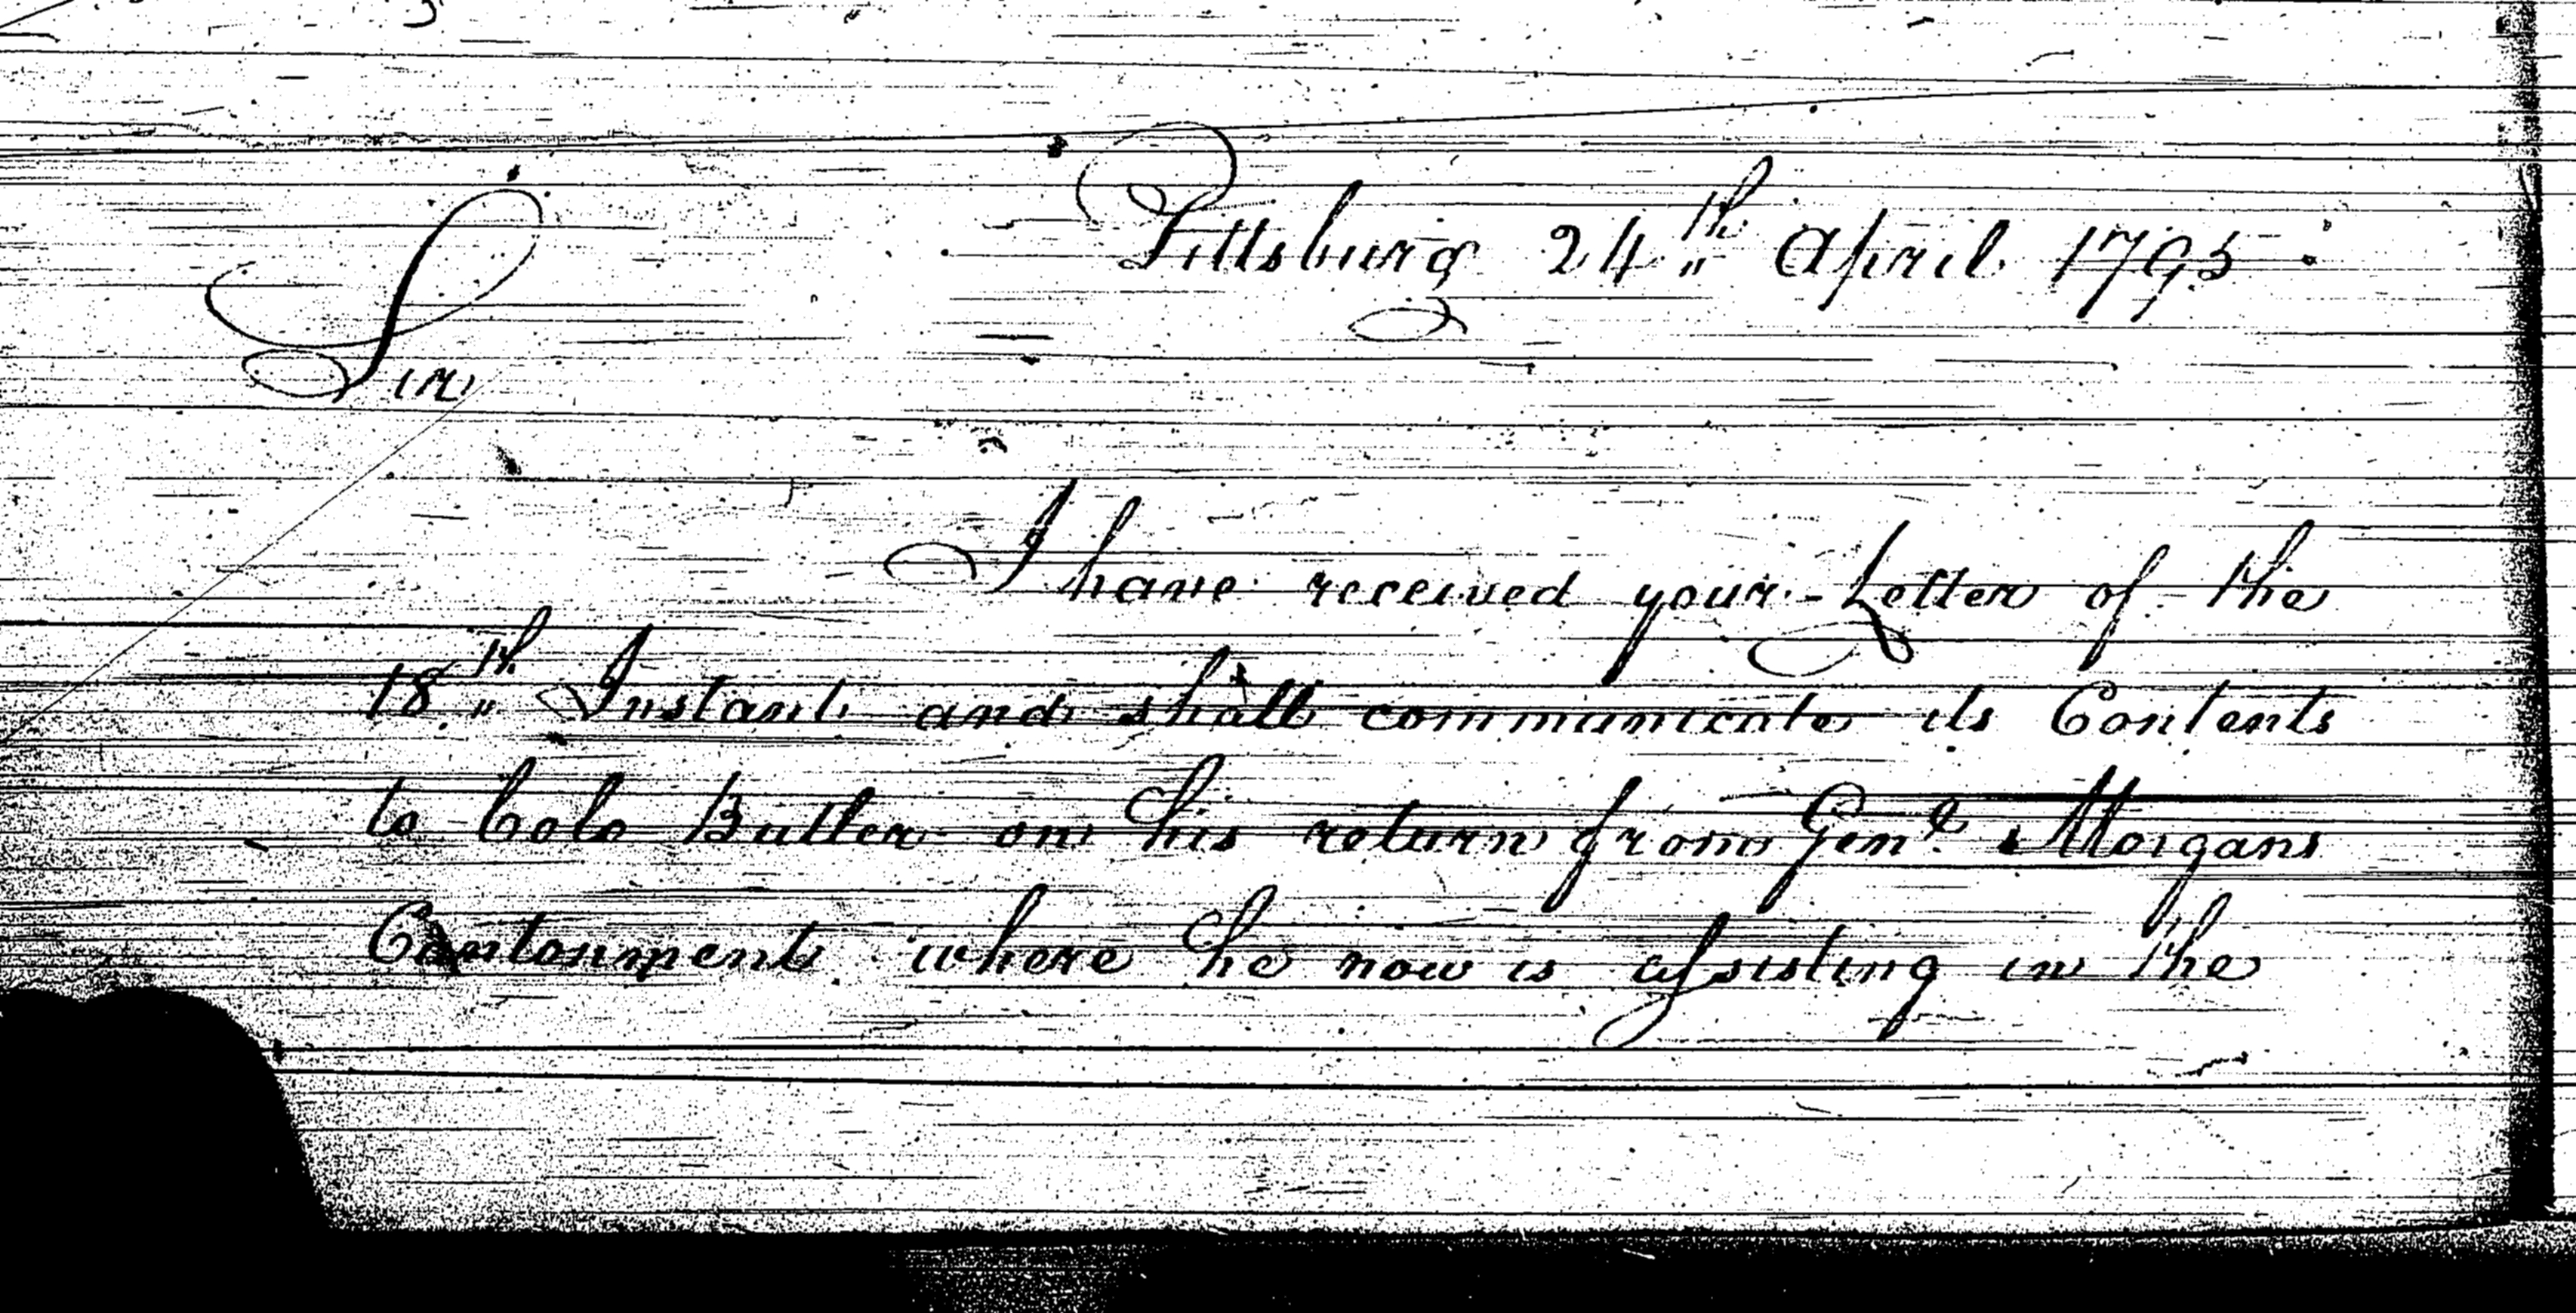 Pittsburg 24th April 1795
Sir
I have received your Letter of the
18th Instant and shall communicate its Contents
to Colo Butler on his return from Genl Morgans
Cantonment where he now is assisting in the